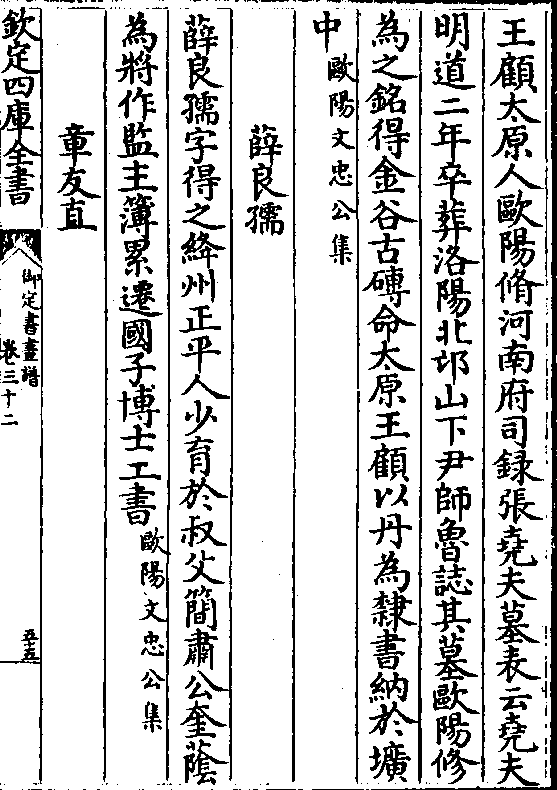 王顧太原人歐陽脩河南府司録張堯夫墓表云堯夫
明道二年卒葬洛陽北邙山下尹師魯誌其墓歐陽修
為之銘得金谷古磚命太原王顧以丹為隸書納於壙
中歐陽文忠公集
薛良孺
薛良孺字得之絳州正平人少育於叔父簡肅公奎蔭
為將作監主簿累遷國子博士工書歐陽文忠公集
章友直
欽定四庫全書
御定書畫譜
卷三十二
五十五